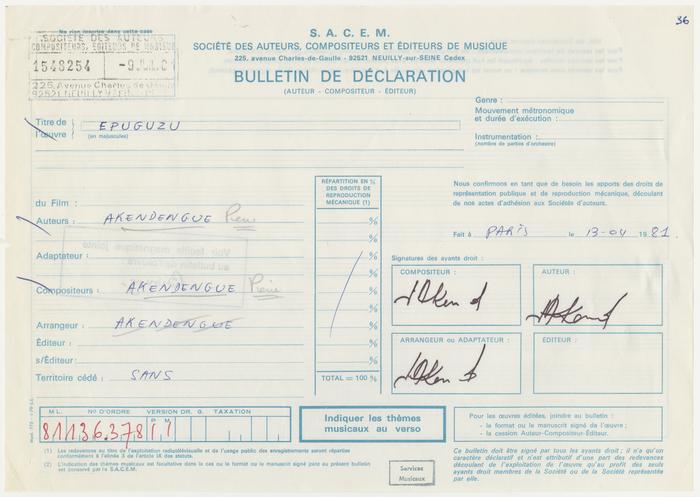 36
Ne rien inscrire dans cette case
SOCIÉTÉ DES AUTEURS
COMPOSITEURS, EDITEURS DE MUSIQUE
1548254
225, Avenue Charles de Gaulle
92521 NEUILLY
S. A. C. E. M.
SOCIÉTÉ DES AUTEURS, COMPOSITEURS ET ÉDITEURS DE MUSIQUE
225, avenue Charles-de-Gaulle - 92521 NEUILLY-sur-SEINE Cedex
BULLETIN DE DÉCLARATION
(AUTEUR - COMPOSITEUR - ÉDITEUR)
Genre :
Mouvement métronomique
et durée d'exécution :
Instrumentation :
(nombre de parties d'orchestre)
Titre de l'œuvre
(en majuscules)
EPUGUZU
RÉPARTITION EN %
DES DROITS DE
REPRODUCTION
MÉCANIQUE (1)
%
%
%
%
%
%
%
%
TOTAL = 100 %
du Film :
Auteurs : AKENDENGUE Pierre
Adaptateur :
Voir feuille magnétique jointe
au bulletin de l'œuvre :
Compositeurs : AKENDENGUE Pierre
Arrangeur : AKENDENGUE
Éditeur :
s/Éditeur :
Territoire cédé : SANS
Nous confirmons en tant que de besoin les apports des droits de
représentation publique et de reproduction mécanique, découlant
de nos actes d'adhésion aux Sociétés d'auteurs.
Fait à PARIS le 13-04 1981
Signatures des ayants droit :
COMPOSITEUR :
AUTEUR :
ARRANGEUR ou ADAPTATEUR :
ÉDITEUR :
M L. N° D'ORDRE VERSION DR. G. TAXATION
P M
81136.378 11
Indiquer les thèmes
musicaux au verso
Pour les œuvres éditées, joindre au bulletin :
- le format ou le manuscrit signé de l'œuvre ;
- la cession Auteur-Compositeur-Éditeur.
(1) Les redevances au titre de l'exploitation radiotélévisuelle et de l'usage public des enregistrements seront réparties
conformément à l'alinéa 3 de l'article IX des statuts.
(2) L'indication des thèmes musicaux est facultative dans le cas où le format ou le manuscrit signé joint au présent bulletin
est conservé par la S.A.C.E.M.
Services
Musicaux
Ce bulletin doit être signé par tous les ayants droit ; il n'a qu'un
caractère déclaratif et n'est attributif d'une part des redevances
découlant de l'exploitation de l'œuvre qu'au profit des seuls
ayants droit membres de la Société ou Sociétés représentées
par elle.